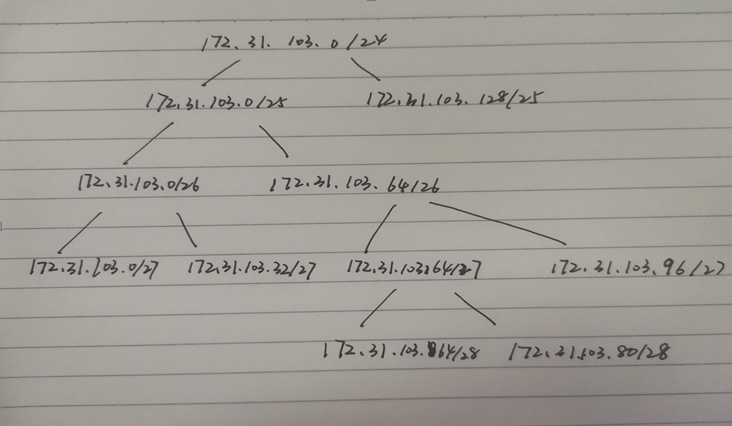 172.31.103.0/24
172.31.103.0/25 172.31.103.128/25
172.31.103.0/26 172.31.103.64/26
172.31.103.0/27 172.31.103.32/27 172.31.103.64/27 172.31.103.96/27
172.31.103.64/28 172.31.103.80/28